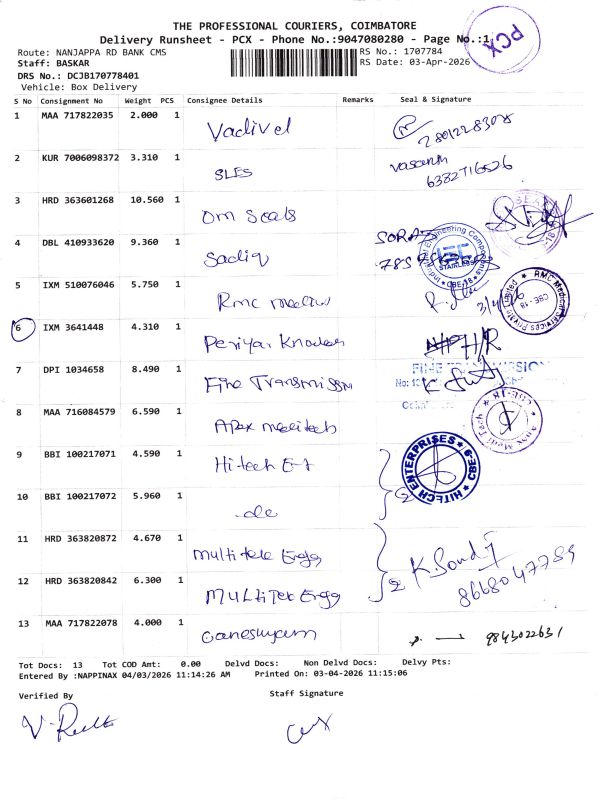 THE PROFESSIONAL COURIERS, COIMBATORE
Delivery Runsheet - PCX - Phone No.:9047080280 - Page No.:1
PCX
Route: NANJAPPA RD BANK CMS
RS No.: 1707784
Staff: BASKAR
RS Date: 03-Apr-2026
DRS No.: DCJB170778401
Vehicle: Box Delivery
S No Consignment No Weight PCS Consignee Details Remarks Seal & Signature
1 MAA 717822035 2.000 1 Vadivel
2 KUR 7006098372 3.310 1 SLES vasanth 6382716526
3 HRD 363601268 10.560 1 Om Seals
4 DBL 410933620 9.360 1 Sadiq
5 IXM 510076046 5.750 1 Rmc 3/4/26
6 IXM 3641448 4.310 1 Periyar H/R
7 DPI 1034658 8.490 1 Fine Transmissm
FINE TRANSMISSION
8 MAA 716084579 6.590 1 Apex meditech
9 BBI 100217071 4.590 1 Hitech
HITECH ENTERPRISES CBE-9
10 BBI 100217072 5.960 1 do 2
11 HRD 363820872 4.670 1 Multitek Engg
12 HRD 363820842 6.300 1 Multitek Engg 2 8668047789
13 MAA 717822078 4.000 1 Ganeshyam 9843022631
Tot Docs: 13 Tot COD Amt: 0.00 Delvd Docs: Non Delvd Docs: Delvy Pts:
Entered By :NAPPINAX 04/03/2026 11:14:26 AM Printed On: 03-04-2026 11:15:06
Verified By Staff Signature